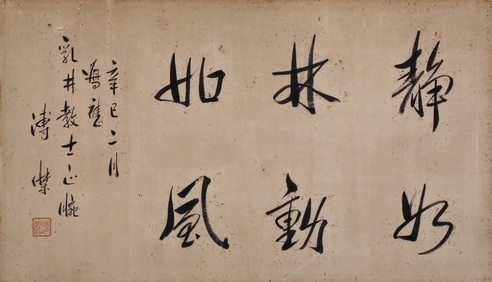 静如
林動
如風
辛巳二月
為應
乳井教士正腕
溥傑